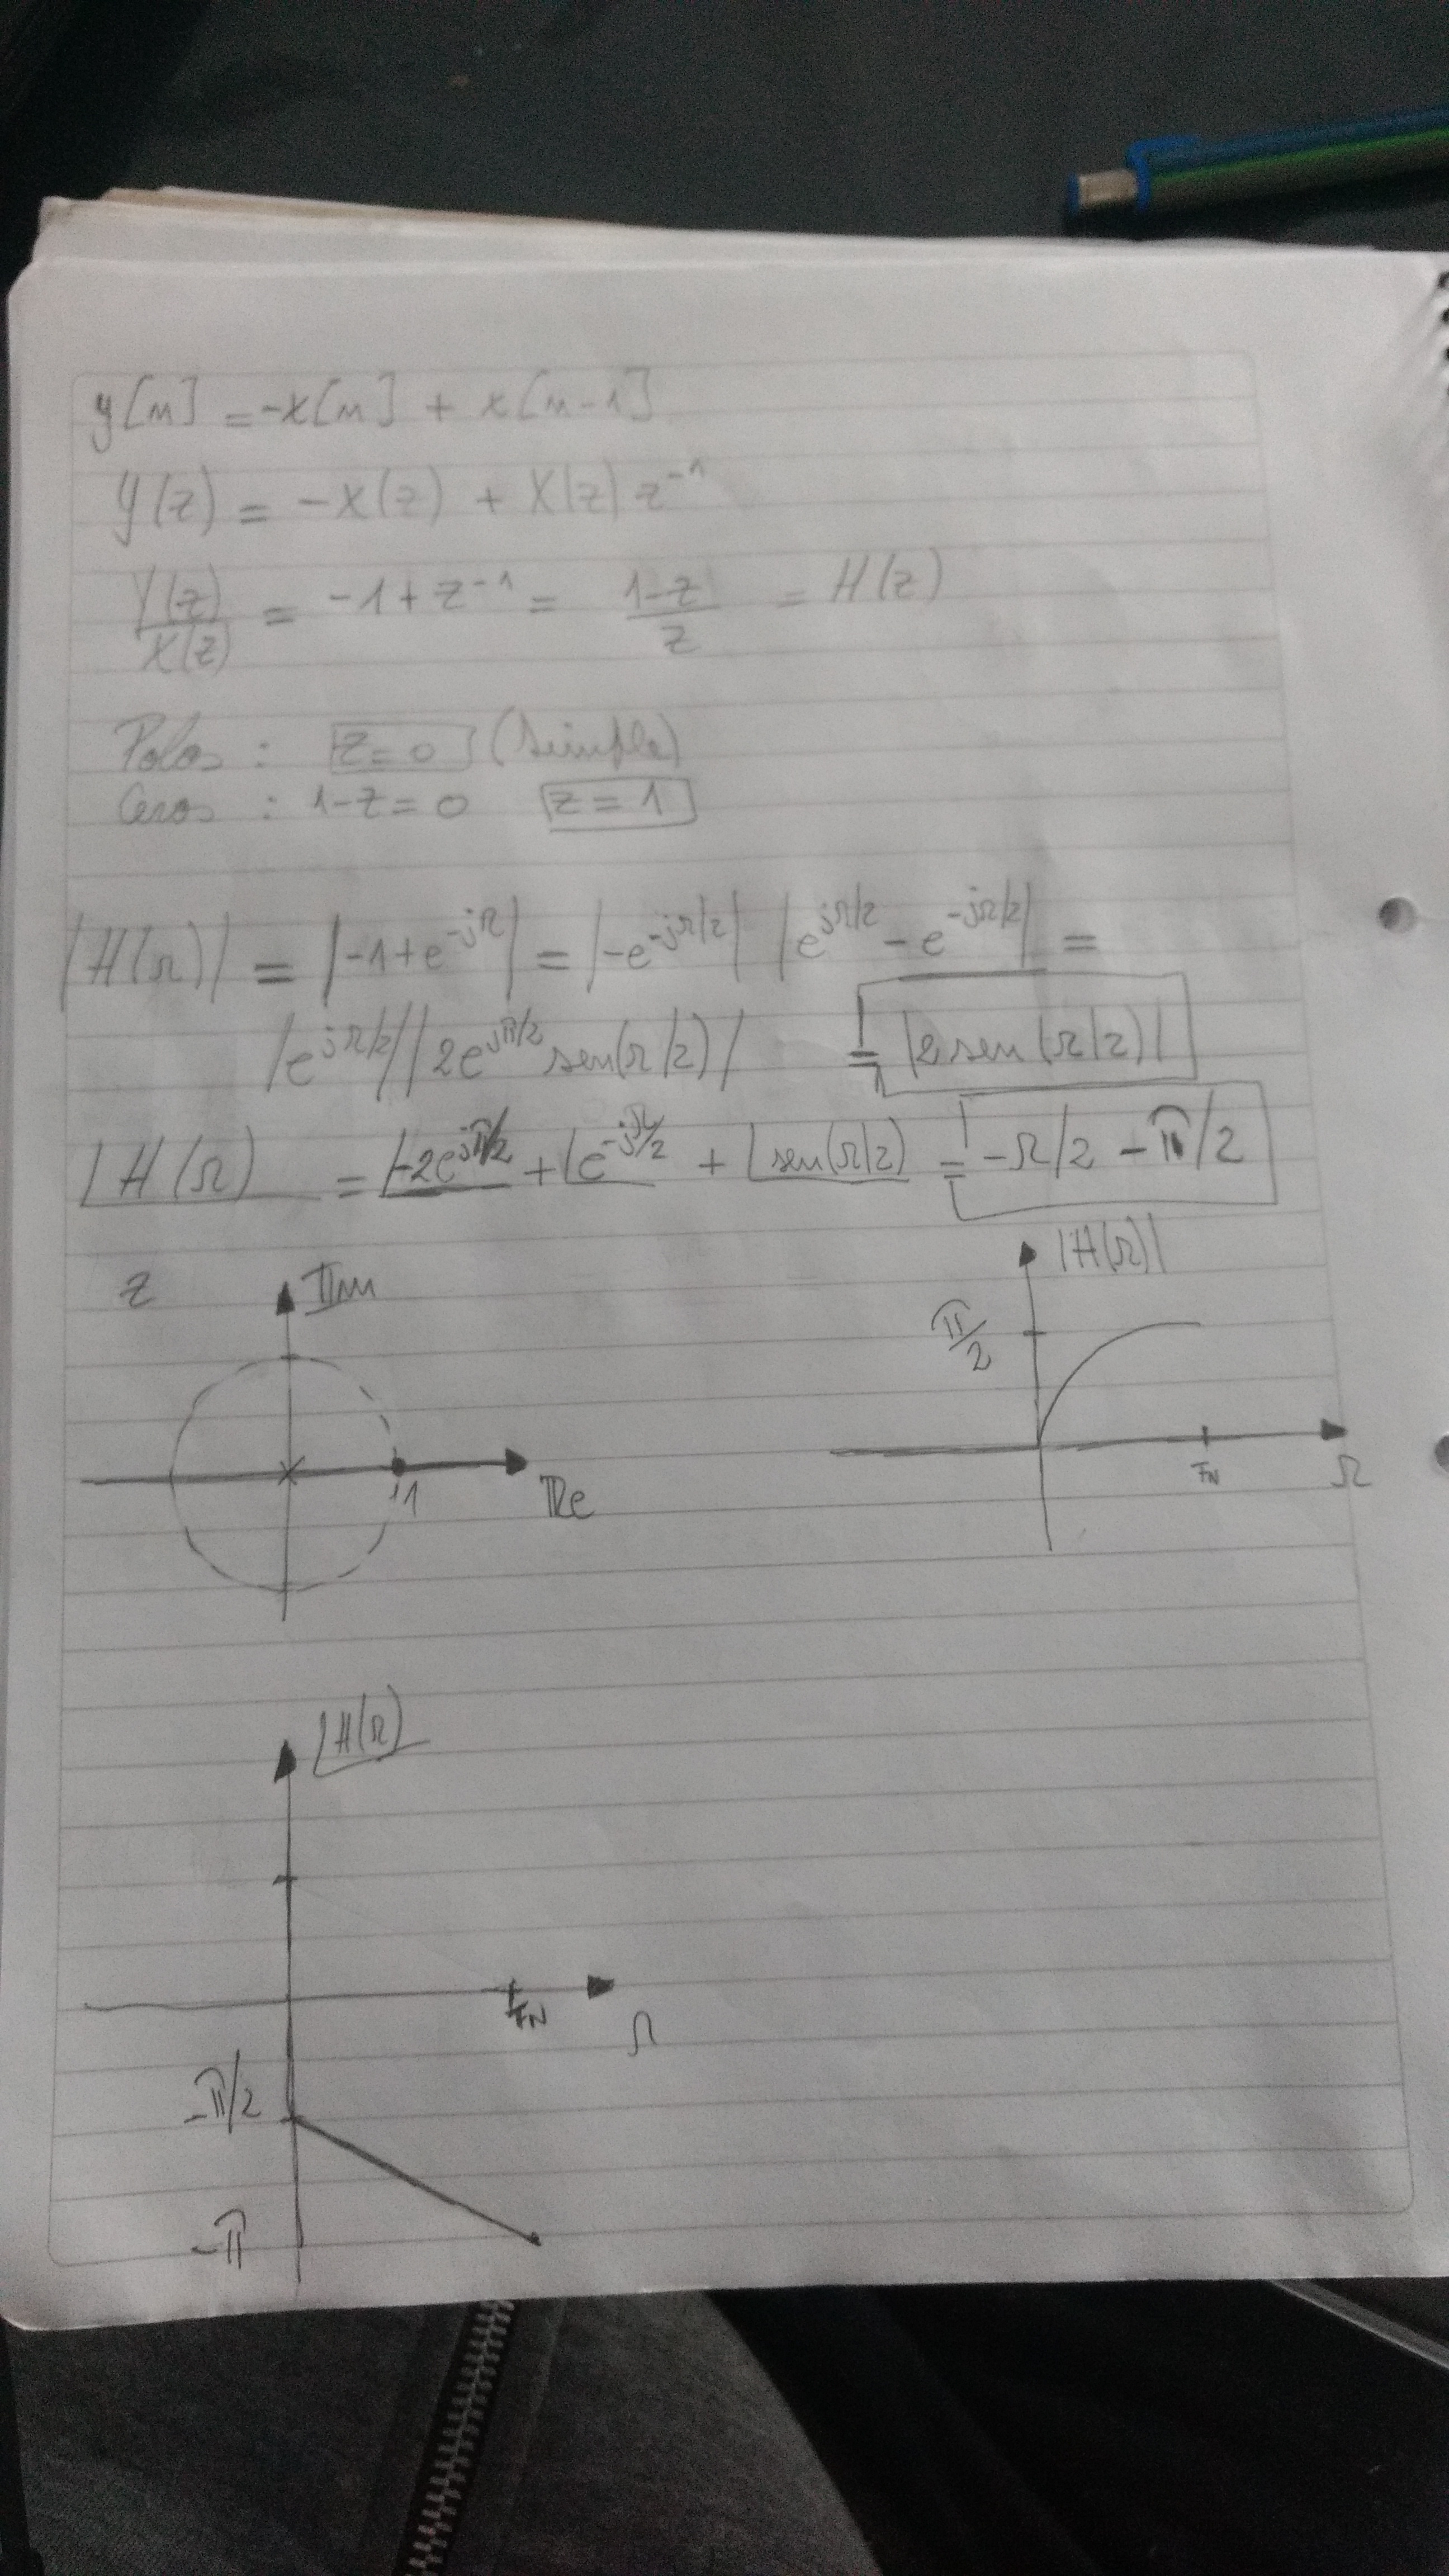 y[n] = -x[n] + x[n-1]
Y(z) = -X(z) + X(z) z⁻¹
Y(z)/X(z) = -1 + z⁻¹ = (1-z)/z = H(z)
Polos : z=0 (simple)
Ceros : 1-z=0 z=1
|H(Ω)| = |-1+e^(-jΩ)| = |-e^(-jΩ/2)| |e^(jΩ/2) - e^(-jΩ/2)| =
|e^(jΩ/2)| |2e^(jπ/2) sen(Ω/2)| = |2 sen(Ω/2)|
∠H(Ω) = ∠-2e^(jπ/2) + ∠e^(-jΩ/2) + ∠sen(Ω/2) = -Ω/2 - π/2
z
Im
1
Re
|H(Ω)|
π/2
FN
Ω
∠H(Ω)
FN
Ω
-π/2
-π